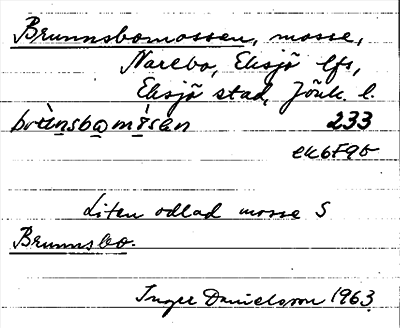 Brunnsbomossen, mosse,
Narebo, Eksjö lfs,
Eksjö stad, Jönk. l.
233
ek6F9b
Liten odlad mosse S
Brunnsbo.
Inger Danielsson 1963.